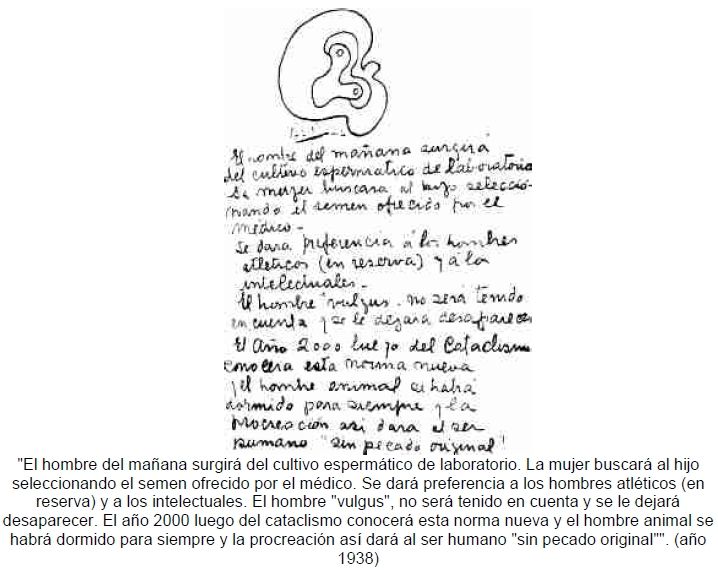 El hombre del mañana surgirá
del cultivo espermatico de laboratorio
La mujer buscara al hijo seleccio-
nando el semen ofrecido por el
médico -
Se dara preferencia á los hombres
atleticos (en reserva) y á los
intelectuales -
El hombre "vulgus" no será tenido
en cuenta y se le dejara desaparecer
El Año 2000 luego del Cataclismo
conocera esta norma nueva
y el hombre animal se habrá
dormido para siempre y la
procreación asi dara al ser
humano "sin pecado original"
"El hombre del mañana surgirá del cultivo espermático de laboratorio. La mujer buscará al hijo
seleccionando el semen ofrecido por el médico. Se dará preferencia a los hombres atléticos (en
reserva) y a los intelectuales. El hombre "vulgus", no será tenido en cuenta y se le dejará
desaparecer. El año 2000 luego del cataclismo conocerá esta norma nueva y el hombre animal se
habrá dormido para siempre y la procreación así dará al ser humano "sin pecado original"". (año
1938)